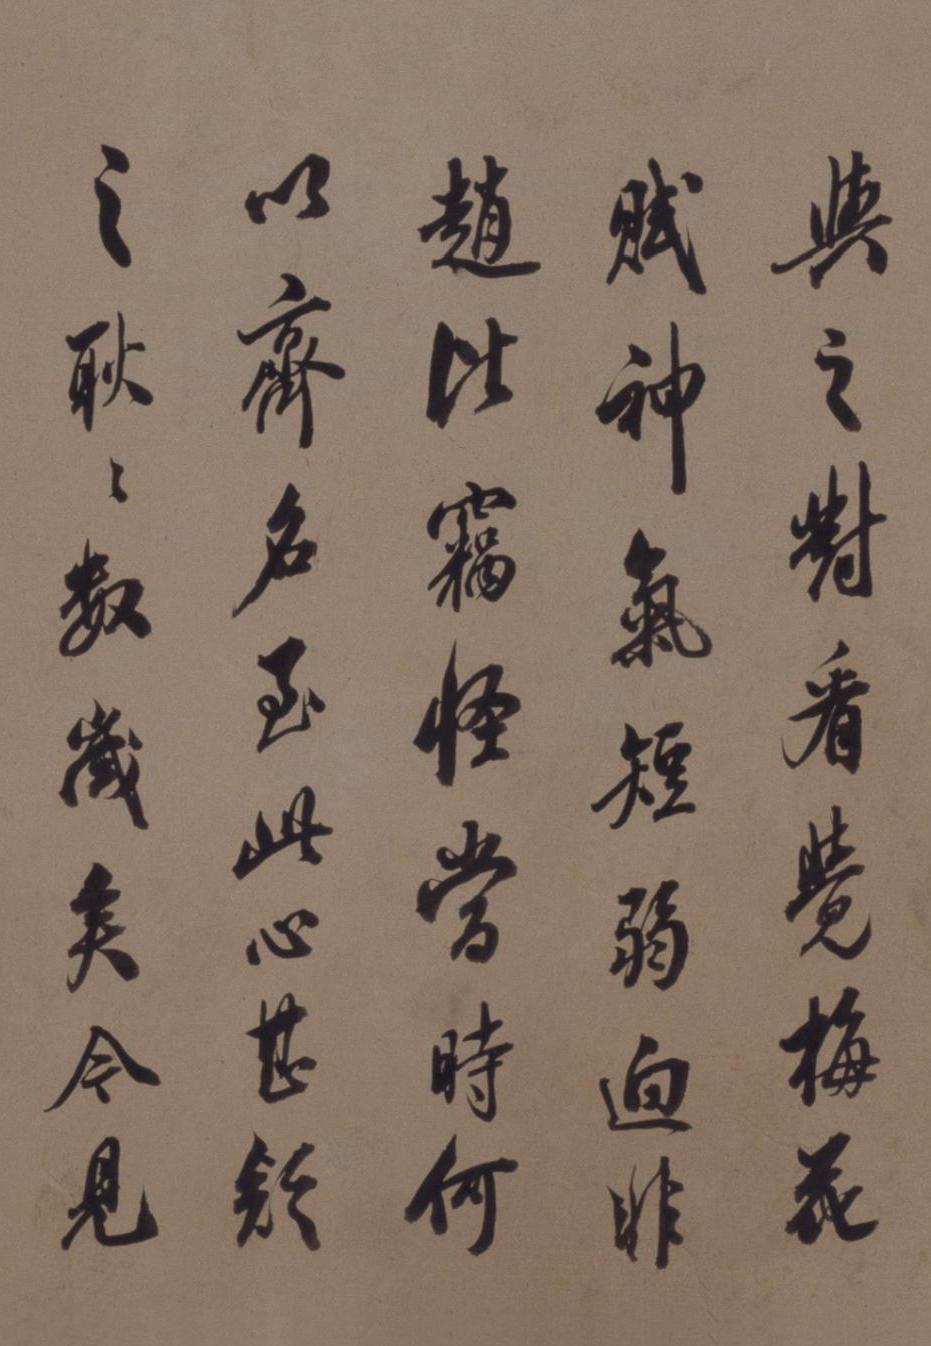 與之對看覺梅花
賦神氣短弱迥非
趙比竊怪當時何
以齊名至此心甚疑
之耿〻數歲矣今見